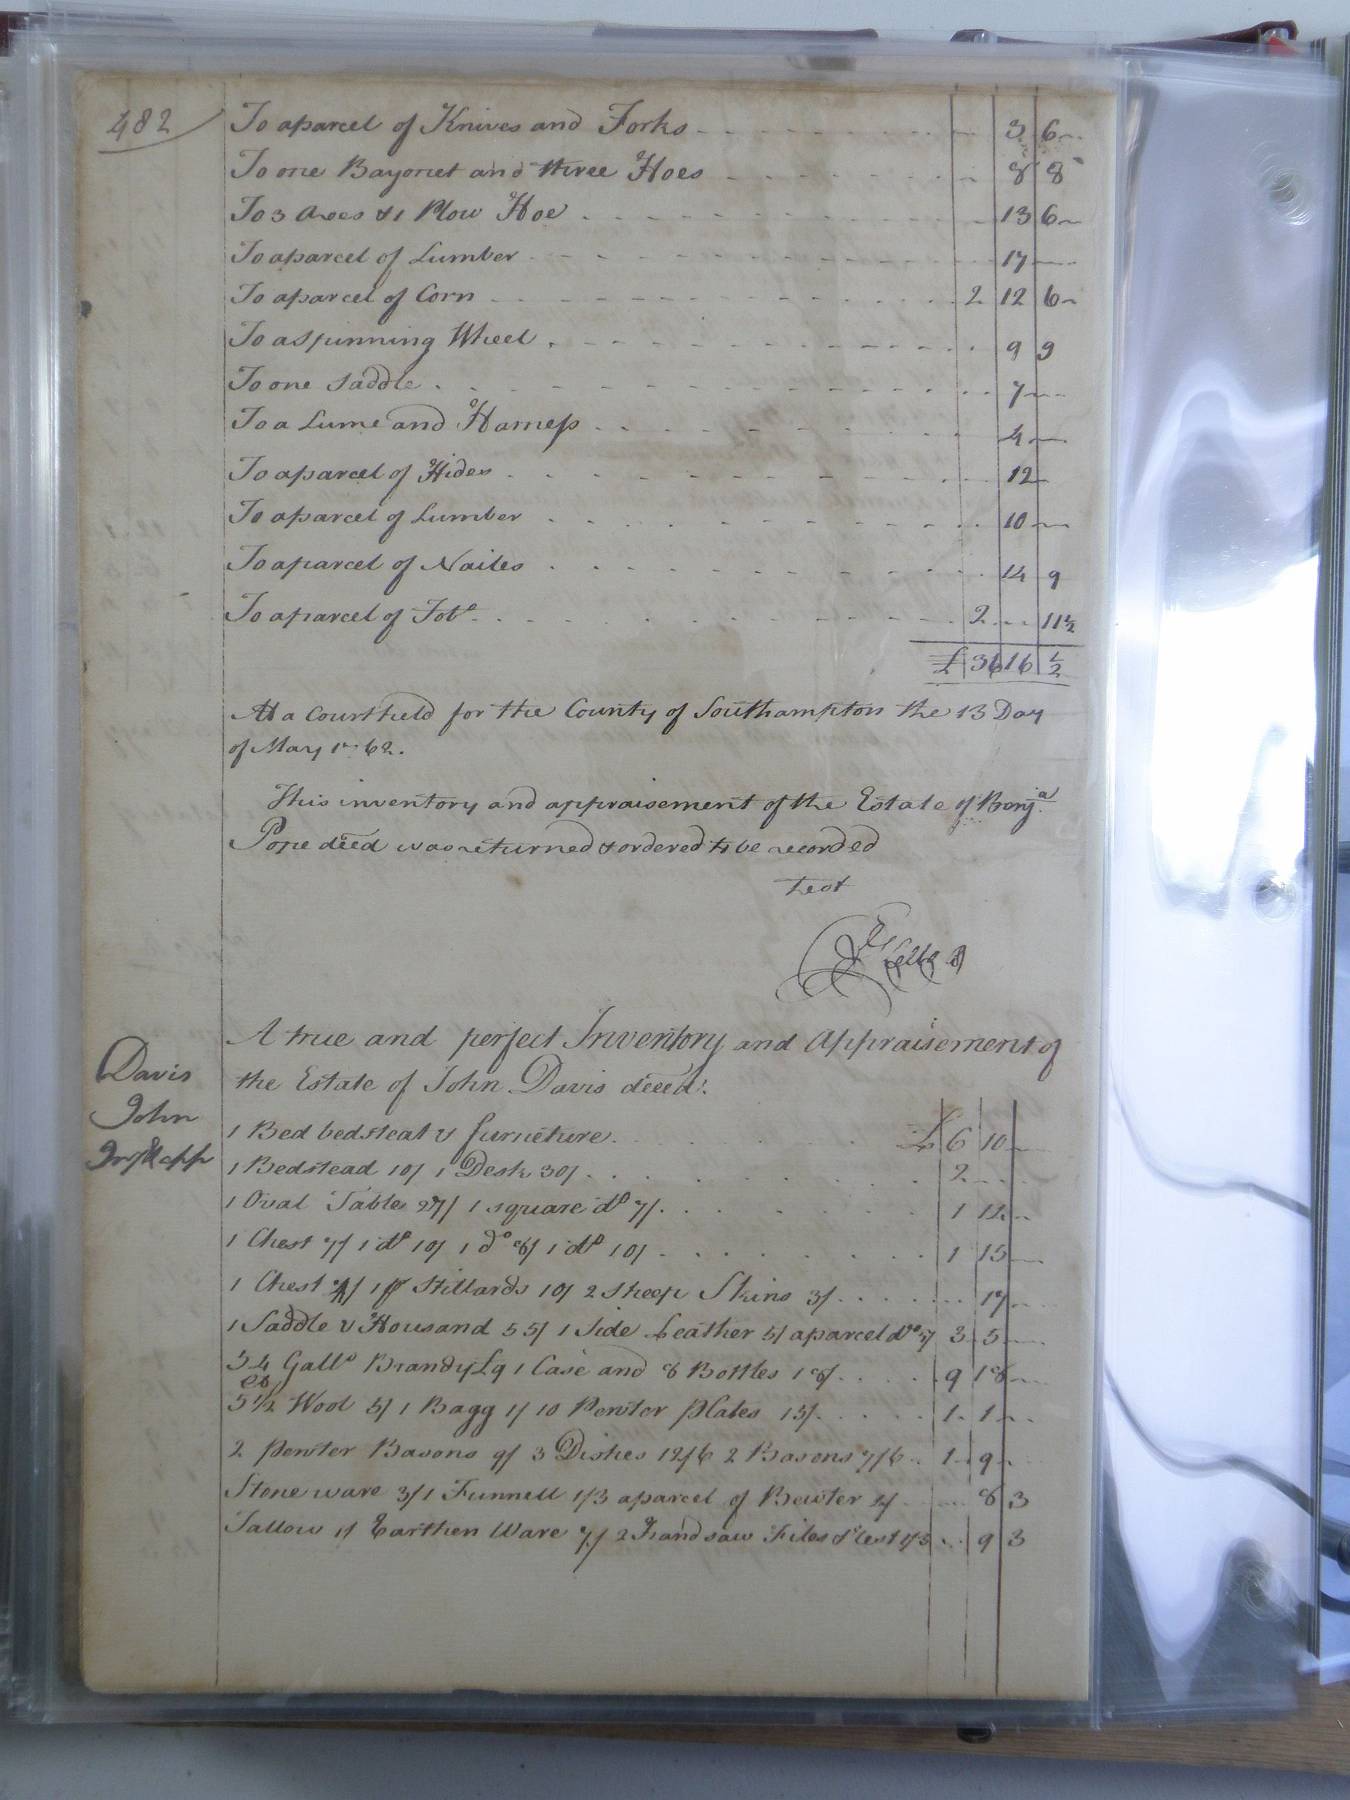 482
To aparcel of Knives and Forks 3 6
To one Bayonet and three Hoes 8 8
To 3 Axes & 1 Plow Hoe 13 6
To aparcel of Lumber 17
To aparcel of Corn 2 12 6
To a Spinning Wheel 9 9
To one Saddle 7
To a Lume and Harness 4
To aparcel of Hides 12
To aparcel of Lumber 10
To aparcel of Nailes 14 9
To aparcel of Tobo 2 11½
£ 36 16 ½
At a Court held for the County of Southampton the 13 Day
of May 1762.
This inventory and appraisement of the Estate of Benja
Pope deced was returned & ordered to be recorded
Test
A true and perfect Inventory and Appraisement of
the Estate of John Davis deced.
Davis
John
1 Bed bedsteat & furneture £ 6 10
1 Bedstead 10/ 1 Desk 30/ 2
1 Oval Table 27/ 1 square do 7/ 1 14
1 Chest 7/ 1 do 10/ 1 do 8/ 1 do 10/ 1 15
1 Chest 4/ 1 pr Stillards 10/ 2 Sheep Skins 3/ 17
1 Saddle & Housand 55/ 1 Side Leather 5/ aparcel do 5/ 3 5
54 Galls Brandy £9 1 Case and 8 Bottles 18/ 9 18
5½ Wool 5/ 1 Bagg 1/ 10 Pewter Plates 15/ 1 1
2 Pewter Basons 9/ 3 Dishes 12/6 2 Basons 7/6 1 9
Stone ware 3/ 1 Funnell 1/3 aparcel of Bewter 4/ 8 3
Tallow 1/ Earthen Ware 7/ 2 Handsaw Files 1/3 9 3